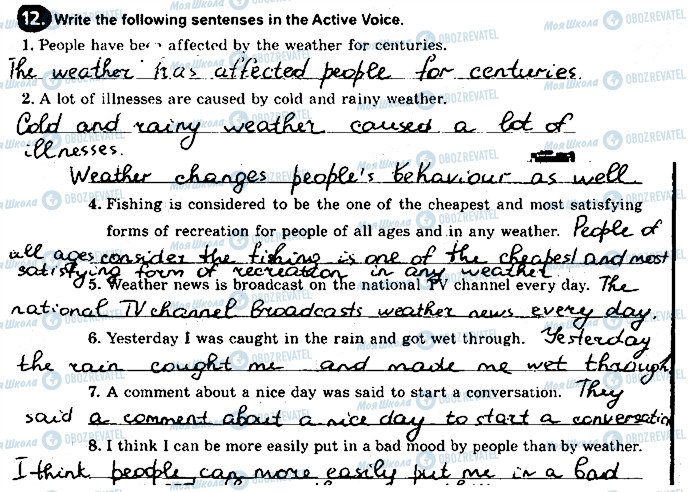 12. Write the following sentences in the Active Voice.
1. People have been affected by the weather for centuries.
The weather has affected people for centuries.
2. A lot of illnesses are caused by cold and rainy weather.
Cold and rainy weather caused a lot of
illnesses.
Weather changes people's behaviour as well
4. Fishing is considered to be the one of the cheapest and most satisfying
forms of recreation for people of all ages and in any weather. People of
all ages consider the fishing is one of the cheapest and most
satisfying form of recreation in any weather.
5. Weather news is broadcast on the national TV channel every day. The
national TV channel broadcasts weather news every day.
6. Yesterday I was caught in the rain and got wet through. Yesterday
the rain cought me and made me wet through.
7. A comment about a nice day was said to start a conversation. They
said a comment about a nice day to start a conversation
8. I think I can be more easily put in a bad mood by people than by weather.
I think people can more easily put me in a bad